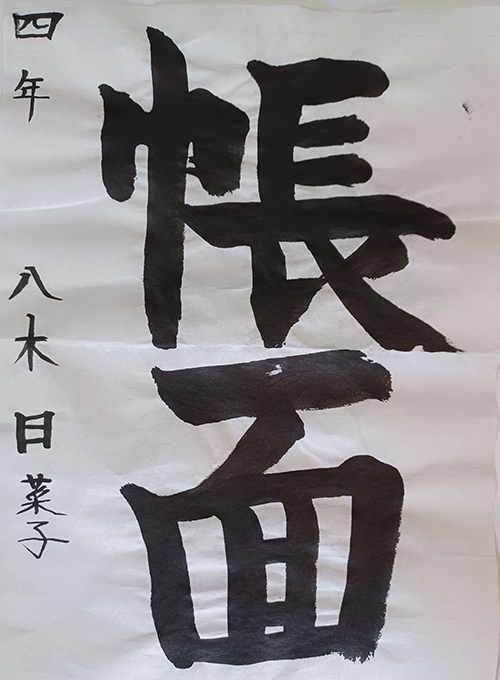 帳面
四年 八木 日菜子